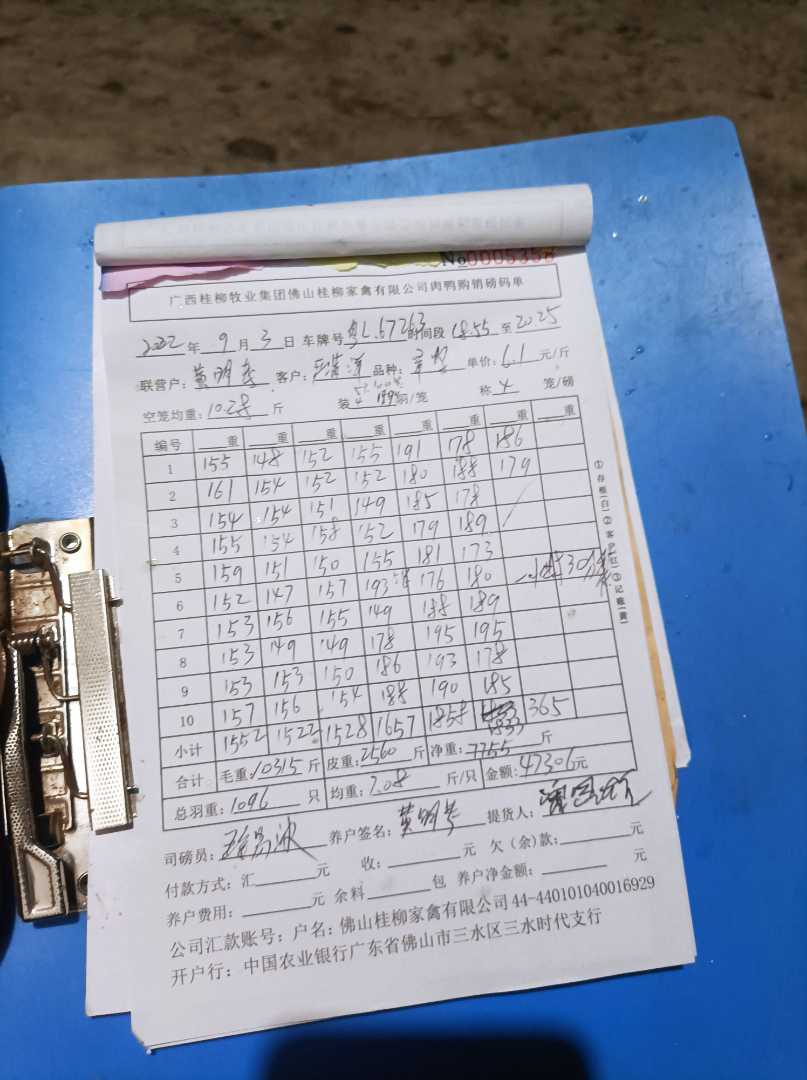 No0005358
广西桂柳牧业集团佛山桂柳家禽有限公司肉鸭购销磅码单
2022年 9月 3日 车牌号 粤L.67263 时间段 18.55 至 2025
联营户: 黄明 客户: 品种: 单价: 6.1 元/斤
空笼均重: 10.28 斤 装 羽/笼 称 4 笼/磅
编号 重 重 重 重 重 重 重 重
1 155 148 152 155 191 178 186
2 161 154 152 152 180 188 179
3 154 154 151 149 185 178
4 155 154 158 152 179 189
5 159 151 150 155 181 173
6 152 147 157 193 176 180
7 153 156 155 149 188 189
8 153 149 149 178 195 195
9 153 153 150 186 193 178
10 157 156 154 188 190 185
小计 1552 1522 1528 1657 1858 1833 365
合计 毛重: 10315 斤 皮重: 2560 斤 净重: 7755 斤
总羽重: 1096 只 均重: 7.08 斤/只 金额: 47306元
司磅员: 养户签名: 黄明 提货人:
付款方式: 汇 元 收: 元 欠(余)款: 元
养户费用: 元 余料 包 养户净金额: 元
公司汇款账号: 户名: 佛山桂柳家禽有限公司 44-440101040016929
开户行: 中国农业银行广东省佛山市三水区三水时代支行
①存根(白)②客户(红)③记账(黄)